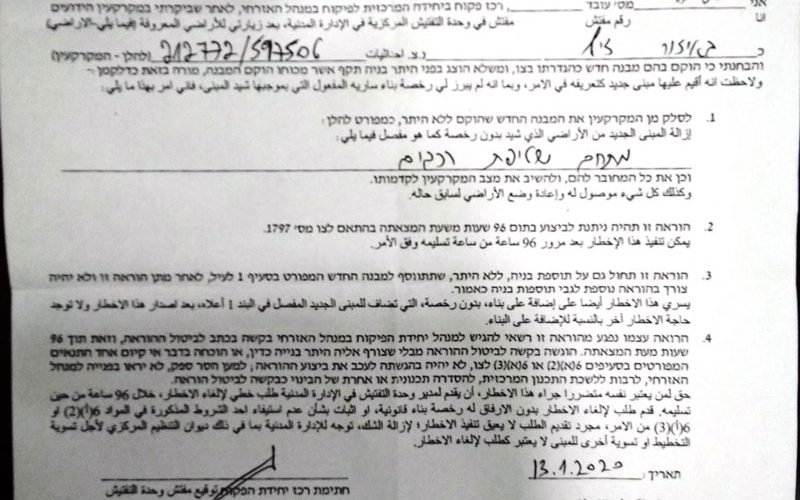 אני מס' עובד , רכז פקוח ביחידה המרכזית לפיקוח במנהל האזרחי, לאחר שביקרתי במקרקעין הידועים
انا رقم مفتش مفتش في وحدة التفتيش المركزية في الإدارة المدنية، بعد زيارتي للأراضي المعروفة (فيما يلي-الاراضي)
נ.צ. احداثيات 212772/597506 (להלן - המקרקעין)
והבחנתי כי הוקם בהם מבנה חדש כהגדרתו בצו, ומשלא הוצג בפני היתר בניה תקף אשר מכוחו הוקם המבנה, מורה בזאת כדלקמן:-
ولاحظت انه أقيم عليها مبنى جديد كتعريفه في الامر، وبما انه لم يبرز لي رخصة بناء ساريه المفعول التي بموجبها شيد المبنى، فاني امر بهذا ما يلي:
1. לסלק מן המקרקעין את המבנה החדש שהוקם ללא היתר, כמפורט להלן:
إزالة المبنى الجديد من الأراضي الذي شيد بدون رخصة كما هو مفصل فيما يلي:
מתחם שטיפת רכבים
וכן את כל המחובר להם, ולהשיב את מצב המקרקעין לקדמותו.
وكذلك كل شيء موصول له وإعادة وضع الأراضي لسابق حاله.
2. הוראה זו תהיה ניתנת לביצוע בתום 96 שעות משעת המצאתה בהתאם לצו מס' 1797.
يمكن تنفيذ هذا الإخطار بعد مرور 96 ساعة من ساعة تسليمه وفق الأمر.
3. הוראה זו תחול גם על תוספת בניה, ללא היתר, שתתווסף למבנה החדש המפורט בסעיף 1 לעיל, לאחר מתן הוראה זו ולא יהיה
צורך בהוראה נוספת לגבי תוספת בניה כאמור.
يسري هذا الاخطار أيضا على إضافة على بناء، بدون رخصة، التي تضاف للمبنى الجديد المفصل في البند 1 أعلاه، بعد اصدار هذا الاخطار ولا توجد
حاجة الاخطار آخر بالنسبة للإضافة على البناء.
4. הרואה עצמו נפגע מהוראה זו רשאי להגיש למנהל יחידת הפיקוח במנהל האזרחי בקשה בכתב לביטול ההוראה, וזאת תוך 96
שעות מעת המצאתה. הוגשה בקשה לביטול ההוראה מבלי שצורף אליה היתר בנייה כדין, או הוכחה בדבר אי קיום אחד התנאים
המפורטים בסעיפים 6(א)(2) או 6(א)(3) לצו, לא יהיה בהגשתה לעכב את ביצוע ההוראה; למען הסר ספק, לא יראו בפנייה למנהל
האזרחי, לרבות ללשכת התכנון המרכזית, להסדרה תכנונית או אחרת של הבינוי כבקשה לביטול ההוראה.
حق لمن يعتبر نفسه متضررا جراء هذا الاخطار، أن يقدم لمدير وحدة التفتيش في الإدارة المدنية طلب خطي لإلغاء الاخطار، خلال 96 ساعة من حين
تسليمه. قدم طلب لإلغاء الاخطار بدون الارفاق له رخصة بناء قانونية، او اثبات بشأن عدم استيفاء احد الشروط المذكورة في المواد 6(أ)(2) او
6(أ)(3) من الامر، مجرد تقديم الطلب لا يعيق تنفيذ الاخطار؛ لإزالة الشك، توجه للإدارة المدنية بما في ذلك ديوان التنظيم المركزي لأجل تسوية
التخطيط او تسوية أخرى للمبنى لا يعتبر كطلب لإلغاء الاخطار.
תאריך: 13.1.2020
חתימת רכז יחידת הפקוח توقيع مفتش وحدة التفتيش